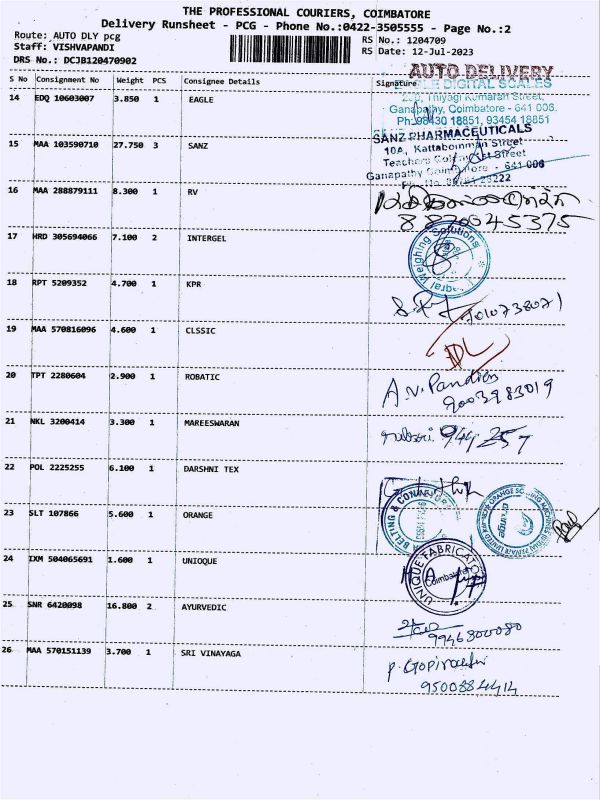 THE PROFESSIONAL COURIERS, COIMBATORE
Delivery Runsheet - PCG - Phone No.:0422-3505555 - Page No.:2
Route: AUTO DLY pcg
RS No.: 1204709
Staff: VISHVAPANDI
RS Date: 12-Jul-2023
DRS No.: DCJB120470902
AUTO DELIVERY
S No Consignment No Weight PCS Consignee Details Signature
14 EDQ 10603007 3.850 1 EAGLE
DIGITAL SCALES
Thiyagi Kumaran Street,
Ganapathy, Coimbatore - 641 006.
Ph: 98430 18851, 93454 18851
15 MAA 103590710 27.750 3 SANZ
SANZ PHARMACEUTICALS
10A, Kattabomman Street
Teachers Street
Ganapathy Coimbatore - 641 006
16 MAA 288879111 8.300 1 RV
8870045375
17 HRD 305694066 7.100 2 INTERGEL
Weighing Solutions
18 RPT 5209352 4.700 1 KPR
19 MAA 570816096 4.600 1 CLSSIC
20 TPT 2280604 2.900 1 ROBATIC
A.V. Pandian
9003983019
21 NKL 3200414 3.300 1 MAREESWARAN
22 POL 2225255 6.100 1 DARSHNI TEX
23 SLT 107866 5.600 1 ORANGE
BELTING &
orange
24 IXM 504065691 1.600 1 UNIOQUE
UNIQUE FABRICATORS
Coimbatore
25 SNR 6420098 16.800 2 AYURVEDIC
9946300080
26 MAA 570151139 3.700 1 SRI VINAYAGA
P. Gopinath
9500884414